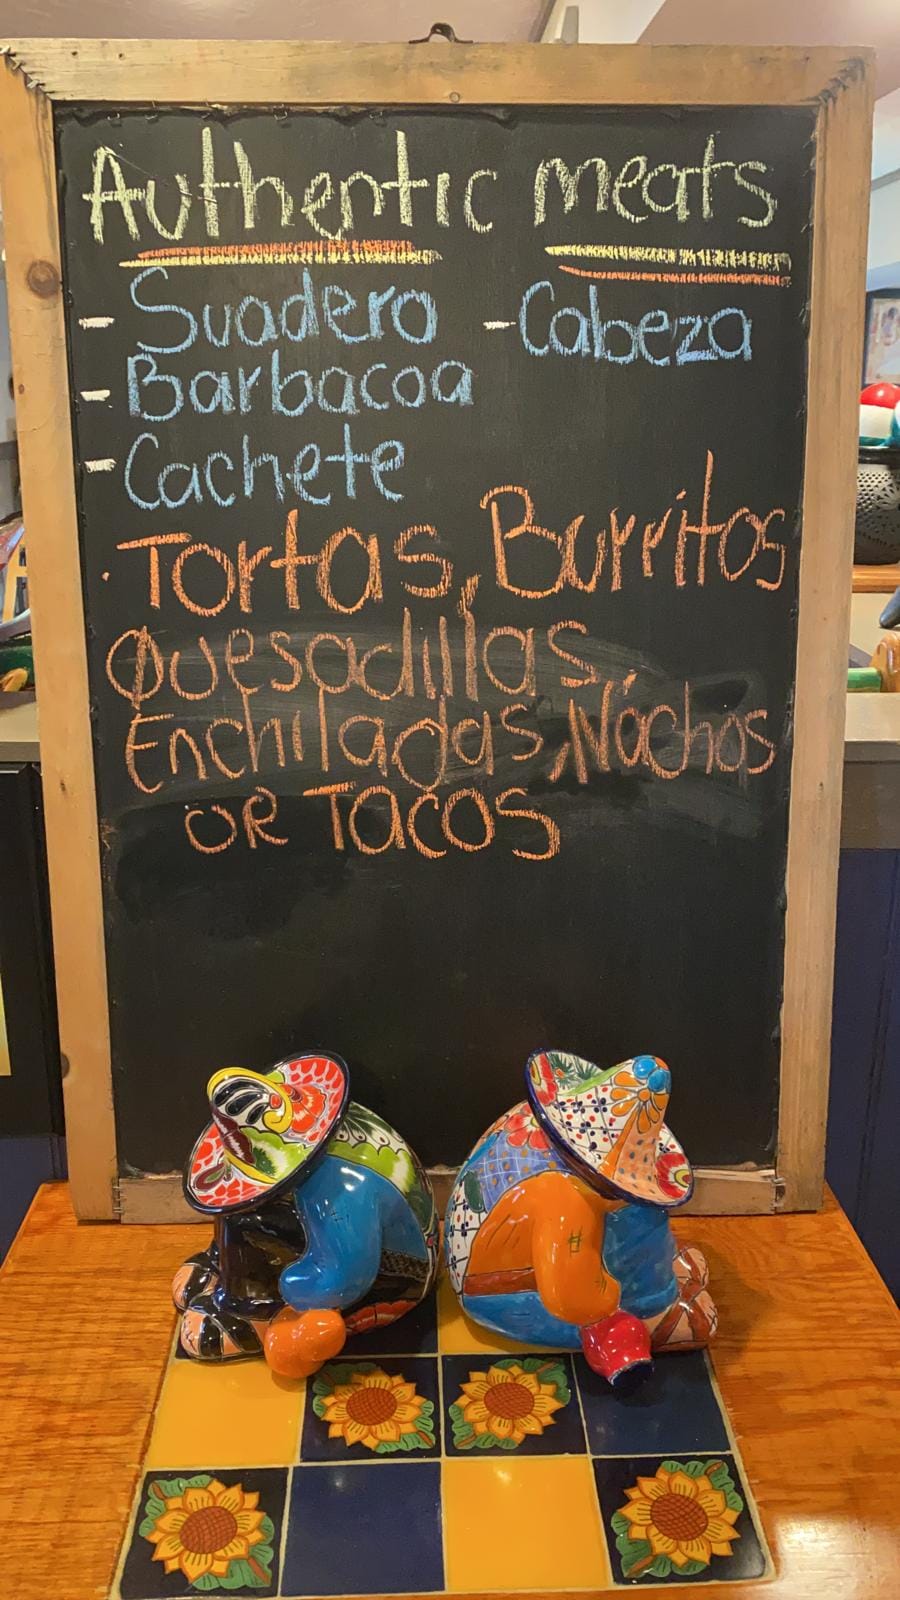 Authentic meats
- Suadero - Cabeza
- Barbacoa
- Cachete
· Tortas, Burritos
Quesadillas,
Enchiladas, Nachos
OR TACOS